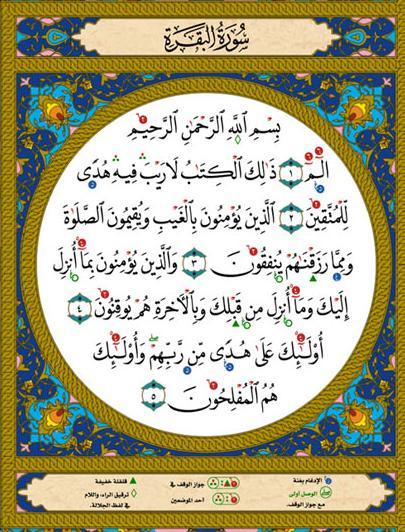 سُورَةُ البَقَرَةِ
بِسْمِ ٱللَّهِ ٱلرَّحْمَٰنِ ٱلرَّحِيمِ
الٓمٓ ١ ذَٰلِكَ ٱلْكِتَٰبُ لَا رَيْبَ ۛ فِيهِ ۛ هُدًى
لِّلْمُتَّقِينَ ٢ ٱلَّذِينَ يُؤْمِنُونَ بِٱلْغَيْبِ وَيُقِيمُونَ ٱلصَّلَوٰةَ
وَمِمَّا رَزَقْنَٰهُمْ يُنفِقُونَ ٣ وَٱلَّذِينَ يُؤْمِنُونَ بِمَآ أُنزِلَ
إِلَيْكَ وَمَآ أُنزِلَ مِن قَبْلِكَ وَبِٱلْءَاخِرَةِ هُمْ يُوقِنُونَ ٤
أُو۟لَٰٓئِكَ عَلَىٰ هُدًى مِّن رَّبِّهِمْ ۖ وَأُو۟لَٰٓئِكَ
هُمُ ٱلْمُفْلِحُونَ ٥
الإدغام بغنة
الوصل أولى
مع جواز الوقف.
جواز الوقف في
أحد الموضعين
قلقلة خفيفة
ترقيق الراء، واللام
في لفظ الجلالة.